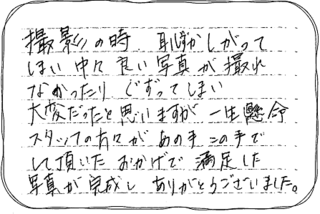 撮影の時 恥ずかしがって
しまい 中々 良い写真が撮れ
なかったり ぐずってしまい
大変だったと思いますが 一生懸命
スタッフの方々が あの手この手で
して頂いた おかげで 満足した
写真が完成し ありがとうございました。